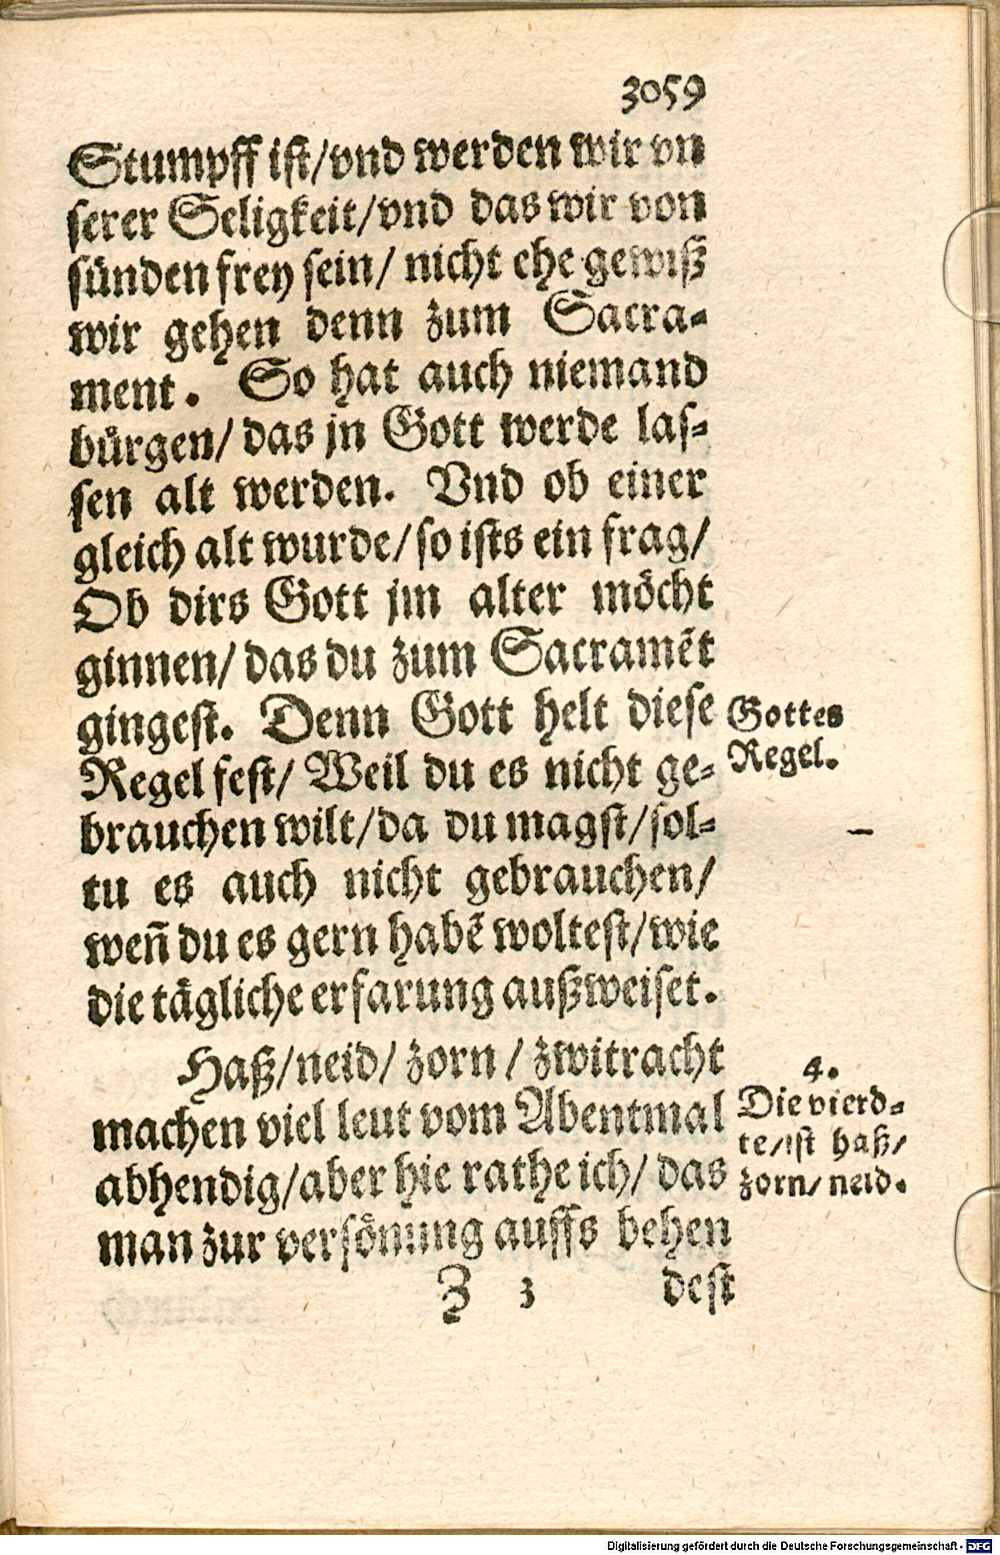 3059
Stumpff ist/vnd werden wir vn
serer Seligkeit/vnd das wir von
sünden frey sein/ nicht ehe gewiß
wir gehen denn zum Sacra-
ment. So hat auch niemand
bürgen/ das jn Gott werde las-
sen alt werden. Vnd ob einer
gleich alt wurde/ so ists ein frag/
Ob dirs Gott jm alter möcht
ginnen/ das du zum Sacramēt
gingest. Denn Gott helt diese
Regel fest/ Weil du es nicht ge-
brauchen wilt/da du magst/sol-
tu es auch nicht gebrauchen/
weñ du es gern habē woltest/wie
die tägliche erfarung außweiset.
Gottes
Regel.
Haß/neid/ zorn / zwitracht
machen viel leut vom Abentmal
abhendig/aber hie rathe ich/ das
man zur versönung auffs behen
4.
Die vierd-
te/ist haß/
zorn/ neid.
Z 3 dest
Digitalisierung gefördert durch die Deutsche Forschungsgemeinschaft - DFG